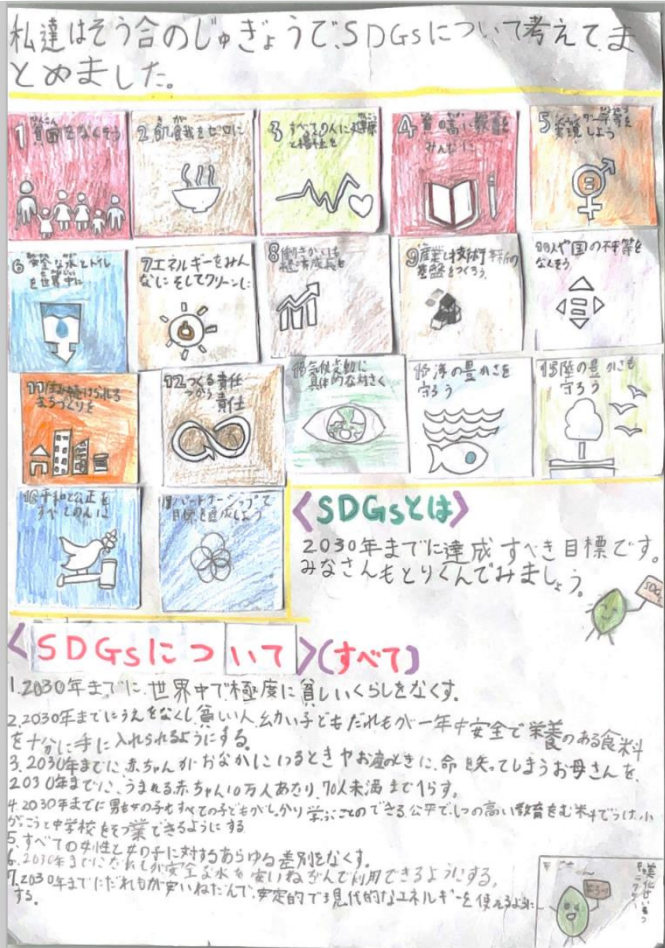 私達はそう合のじゅぎょうで、SDGsについて考えてま
とめました。
1 貧困をなくそう
2 飢餓をゼロに
3 すべての人に健康
と福祉を
4 質の高い教育を
みんなに
5 ジェンダー平等を
実現しよう
6 安全な水とトイレ
を世界中に
7 エネルギーをみん
なに そしてクリーンに
8 働きがいも
経済成長も
9 産業と技術革新の
基盤をつくろう
10 人や国の不平等を
なくそう
11 住み続けられる
まちづくりを
12 つくる責任
つかう責任
気候変動に
具体的な対さく
海の豊かさを
守ろう
15 陸の豊かさも
守ろう
16 平和と公正を
すべての人に
パートナーシップで
目標を達成しよう
<SDGsとは>
2030年までに達成すべき目標です。
みなさんもとりくんでみましょう。
SDGs
<SDGsについて>(すべて)
1.2030年までに、世界中で極度に貧しいくらしをなくす。
2.2030年までにうえをなくし、貧しい人、幼い子どもだれもが一年中安全で栄養のある食料
を十分に手に入れられるようにする。
3.2030年までに赤ちゃんがおなかにいるときやお産のときに、命を失ってしまうお母さんを、
2030年までに、うまれる赤ちゃん10万人あたり、70人未満までへらす。
4.2030年までに男の子も女の子もすべての子どもがしっかり学ぶことのできる公平で、しつの高い教育をむ料でうけ、小
がっこうと中学校をそつ業できるようにする
5.すべての女性と女の子に対するあらゆる差別をなくす。
6.2030年までにだれもが安全な水を安いねだんで利用できるようにする。
7.2030年までにだれもが安いねだんで、安定的で現代的なエネルギーを使えるように
する。